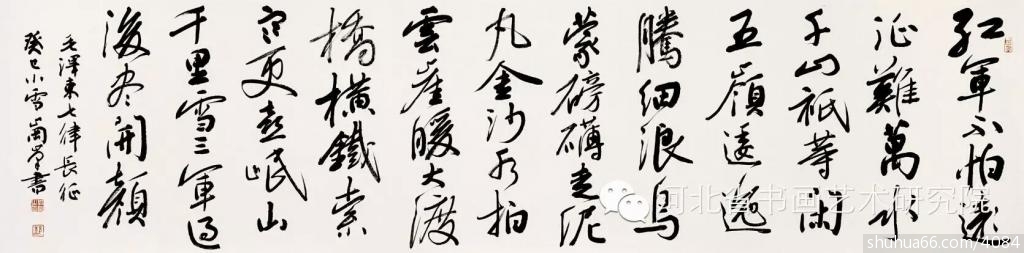 紅軍不怕遠
征難萬水
千山祇等閑
五嶺逶迤
騰細浪烏
蒙磅礴走泥
丸金沙水拍
雲崖暖大渡
橋橫鐵索
寒更喜岷山
千里雪三軍過
後尽開顏
毛澤東七律長征
癸巳小雪書
河北省书画艺术研究院
shuhua66.com/4084